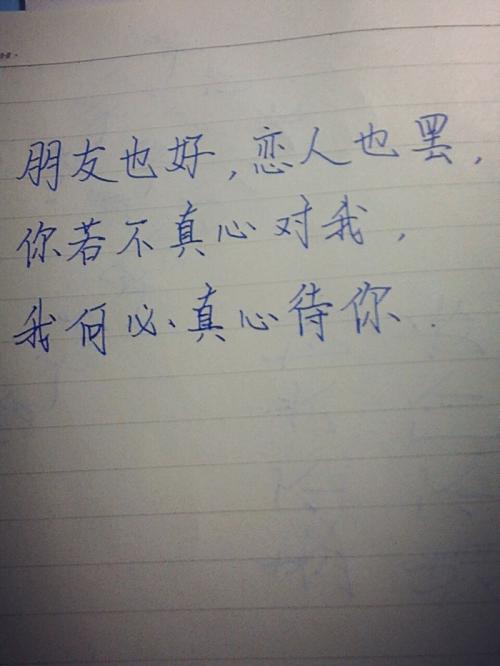 朋友也好，恋人也罢，
你若不真心对我，
我何必真心待你.